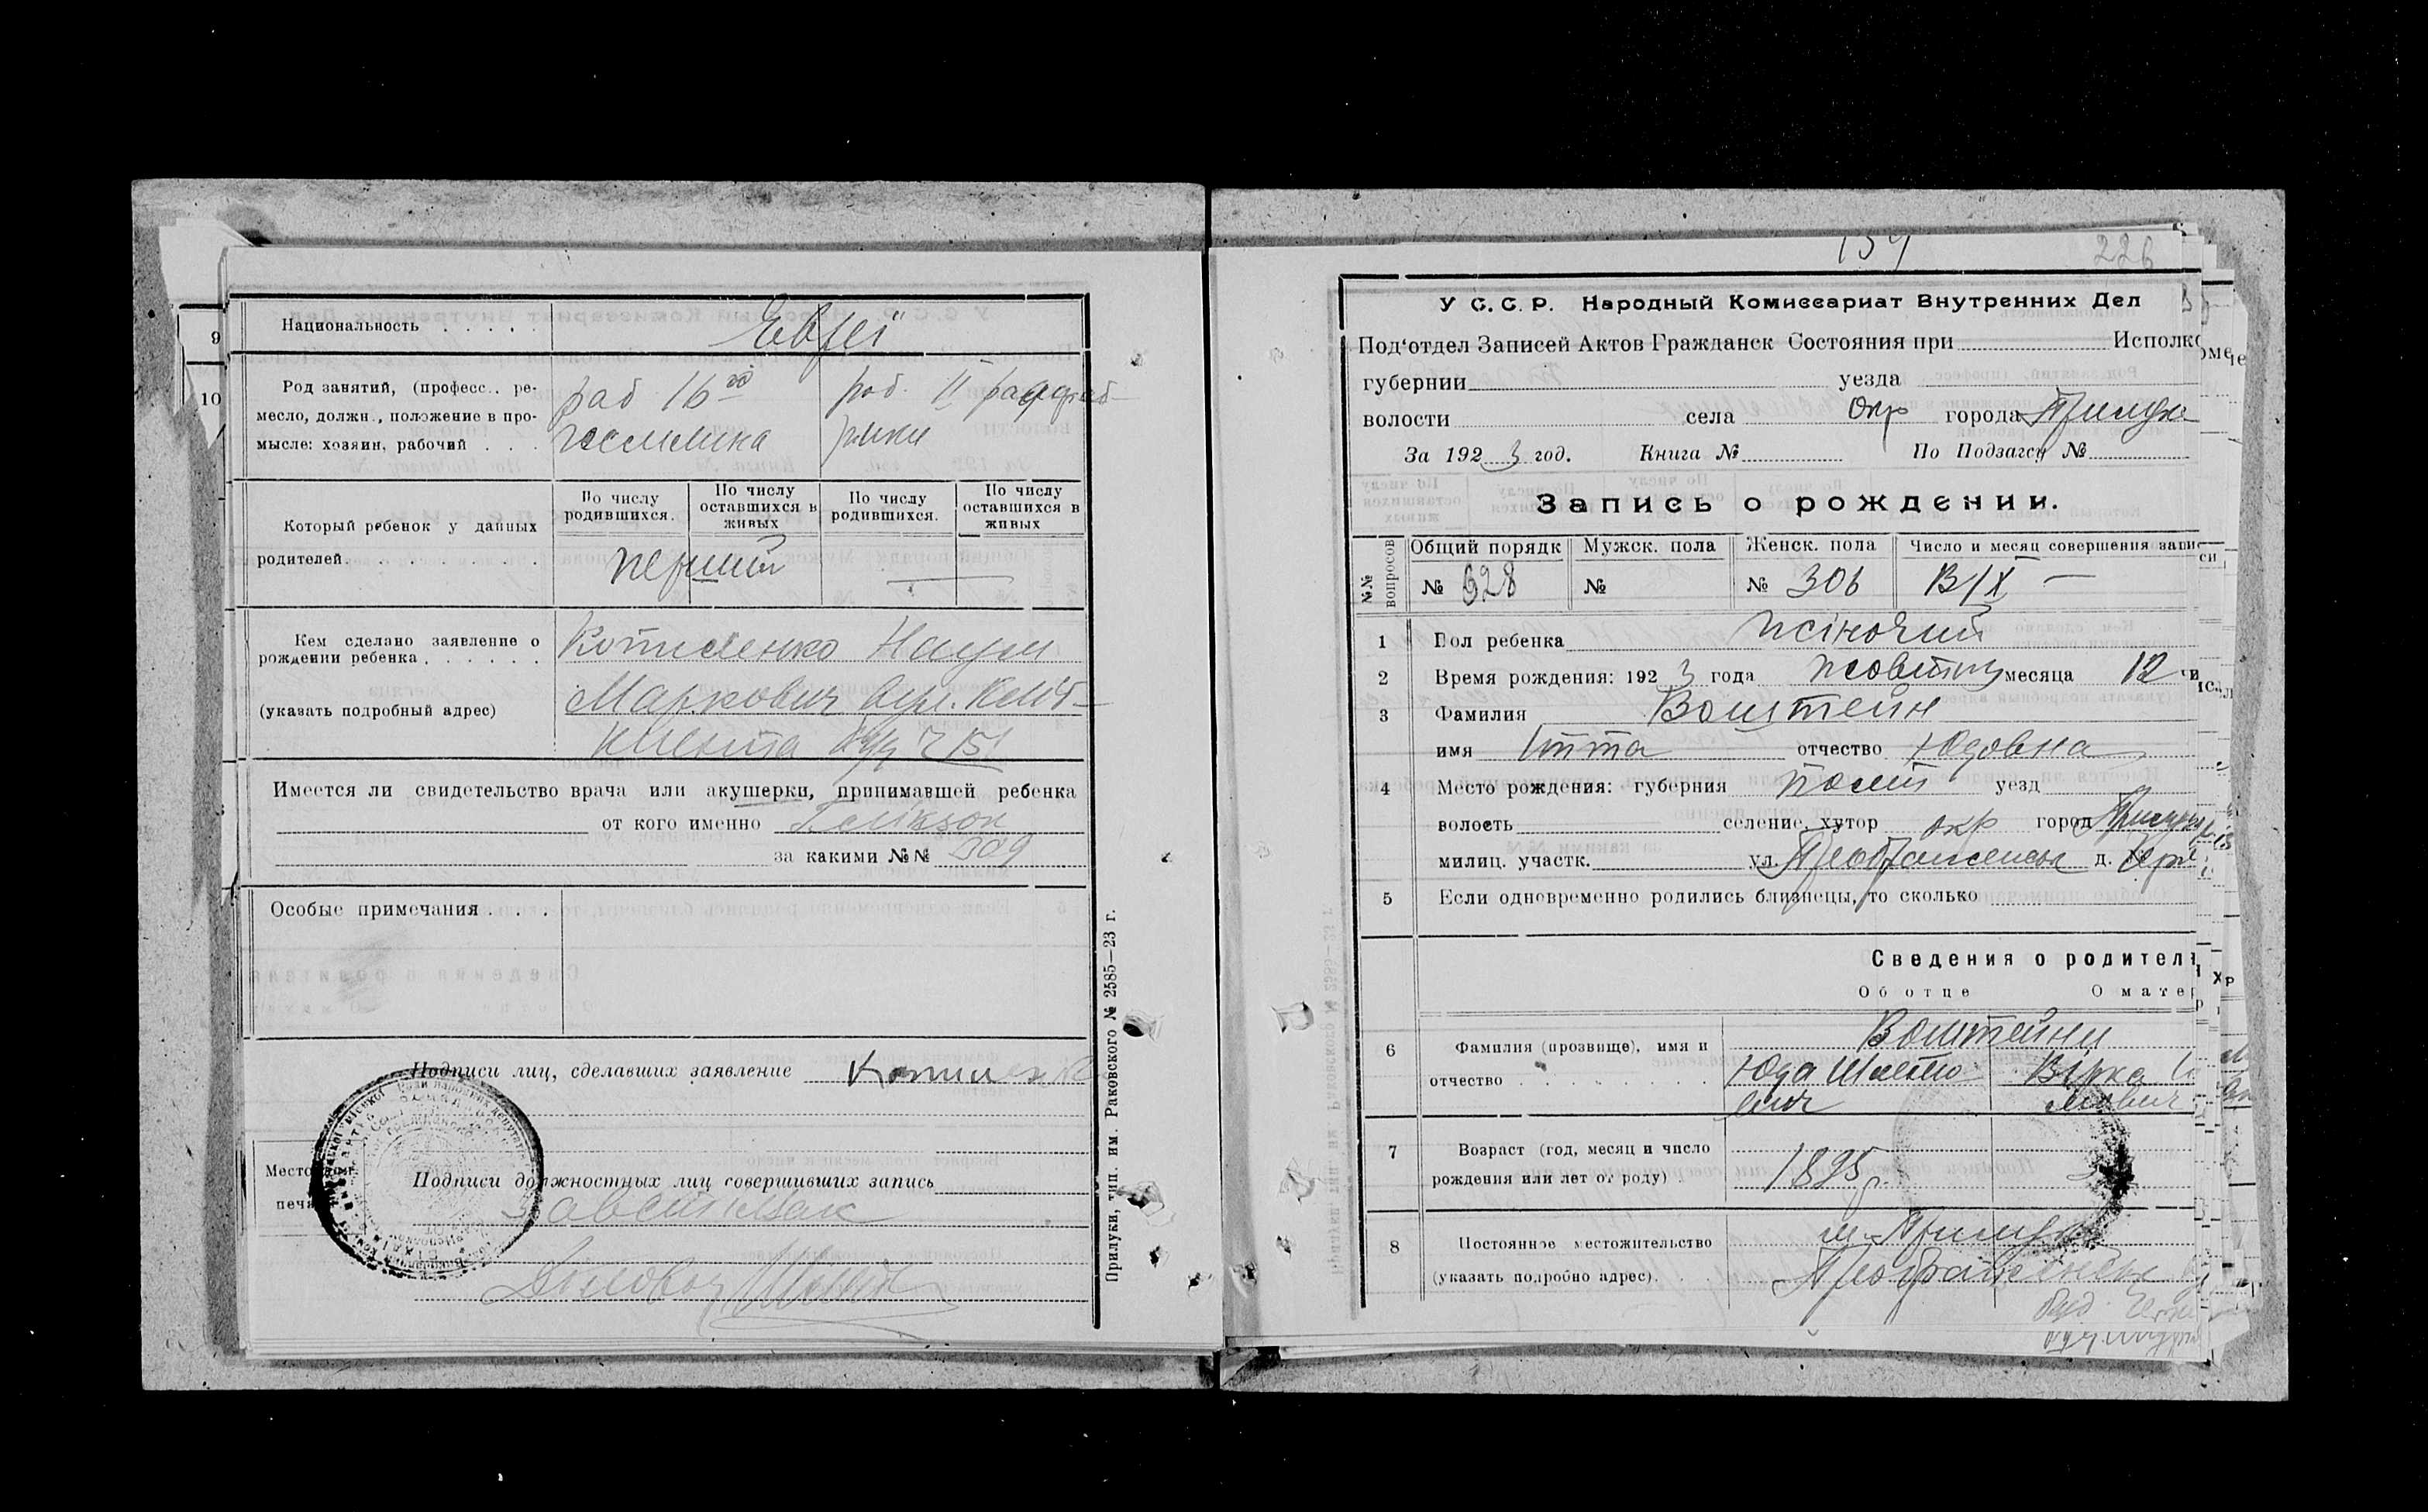 9
10
Национальность . . . . .
Евреї
Род занятий, (професс.. ре-
месло, должн., положение в про-
мысле: хозяин, рабочий . . .
раб 16
роб. II
Который ребенок у данных
родителей. . . . . . . . .
По числу родившихся.
По числу оставшихся в живых
По числу родившихся.
По числу оставшихся в живых
перший
Кем сделано заявление о
рождении ребенка . . . . . .
(указать подробный адрес)
Котиленко Наум
Маркович вул.
Имеется ли свидетельство врача или акушерки, принимавшей ребенка
от кого именно
за какими №№ 309
Особые примечания . . .
Подписи лиц, сделавших заявление
Место для
печати
Подписи должностных лиц совершивших запись
Завстолом
Прилуки, тип. им. Раковского № 2585—23 г.
226
У С.С.Р. Народный Комиссариат Внутренних Дел
Под'отдел Записей Актов Гражданск Состояния при Исполко
губернии уезда
волости села Окр города Прилуки
За 1923 год. Книга № По Подзагсу №
Запись о рождении.
№№ вопросов
Общий порядк № 628
Мужск. пола №
Женск. пола № 306
Число и месяц совершения записи
1 Пол ребенка жіночий
2 Время рождения: 1923 года жовтня месяца 12 числ
3 Фамилия Воштейн
имя Ітта отчество Юдовна
4 Место рождения: губерния Полт уезд
волость селение, хутор окр город Прилуки
милиц. участк. ул. Преображенськ д. №
5 Если одновременно родились близнецы, то сколько
Сведения о родител
Об отце О матер
6 Фамилия (прозвище), имя и
отчество . . . . . . . .
Воштейни
Юда
Вірка
7 Возраст (год, месяц и число
рождения или лет от роду) .
1895 р.
8 Постоянное местожительство
(указать подробно адрес). . .
м. Прилуки
Преображенськ